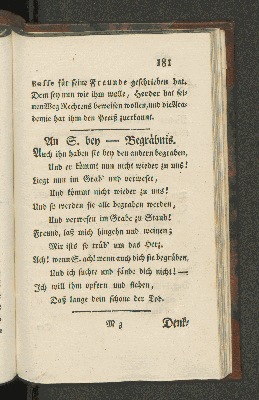 181
kulse für seine Freunde geschrieben hat.
Dem sey nun wie ihm wolle, Herder hat sei-
nen Weg Rechtens beweisen wollen, und die Aca-
demie hat ihm den Preiß zuerkannt.
An S. bey — Begräbnis.
Auch ihn haben sie bey den andern begraben,
Und er kömmt nun nicht wieder zu uns!
Liegt nun im Grab' und verwest,
Und kömmt nicht wieder zu uns!
Und so werden sie alle begraben werden,
Und verwesen im Grabe zu Staub!
Freund, laß mich hingehn und weinen;
Mir ists so trüb' um das Herz.
Ach! wenn S. ach! wenn auch dich sie begrüben,
Und ich suchte und fände dich nicht! —
Ich will ihm opfern und flehen,
Daß lange dein schone der Tod.
M 3 Denk-